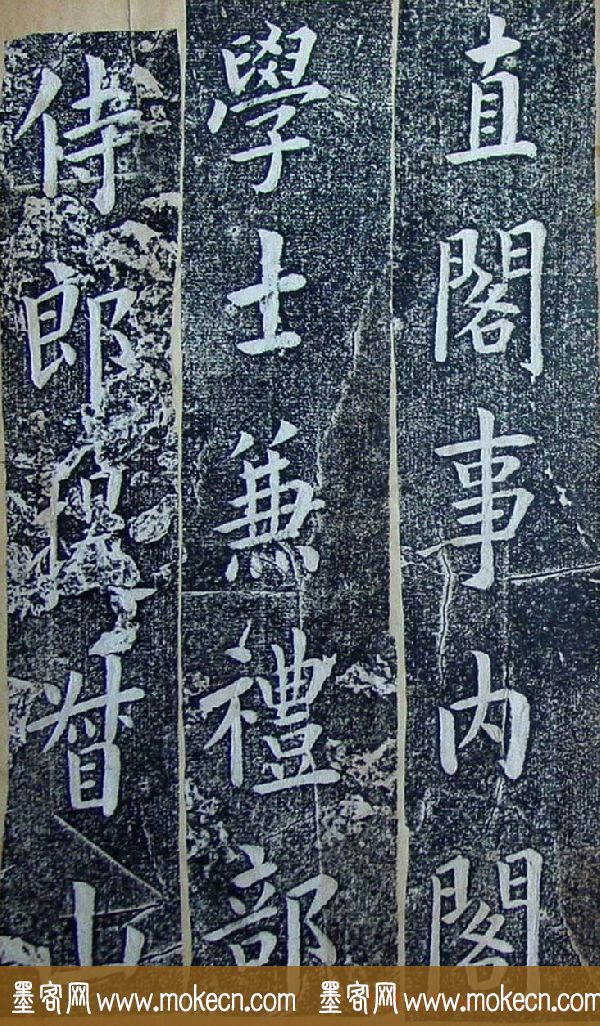 直閣事內閣
學士兼禮部
侍郎提督山
墨客网 www.mokecn.com 墨客网 www.mokecn.com